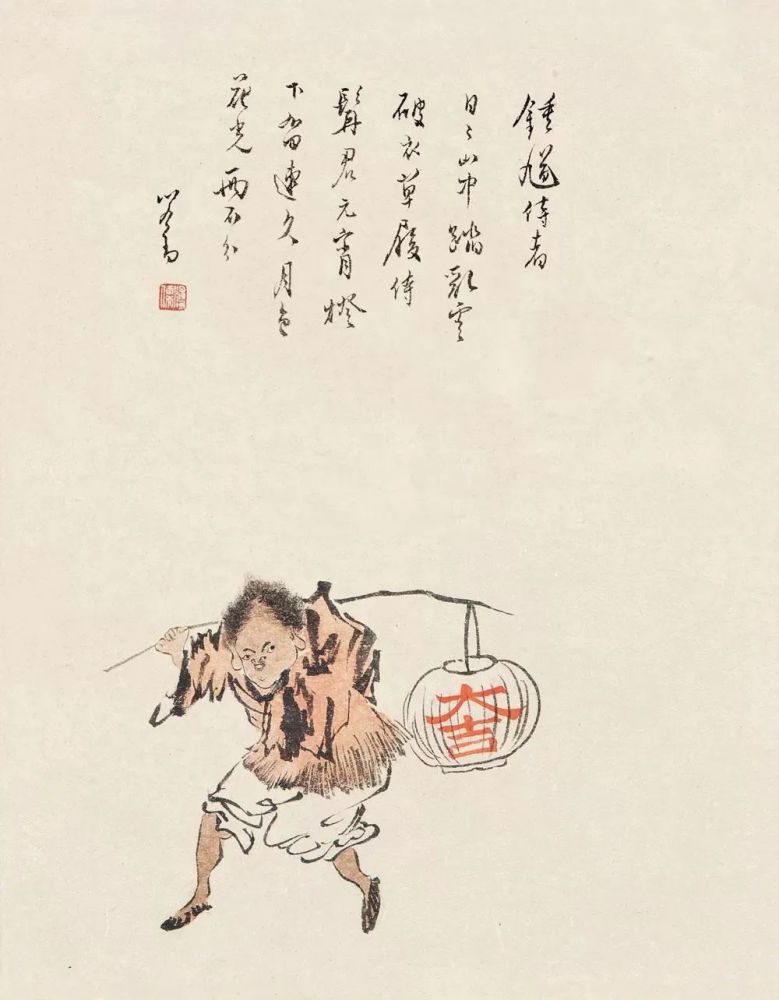 鍾馗侍者
日々山中踏亂雲
破衣草履侍
髯君元宵燈
下留連久月色
花光兩不分
心畬
大吉